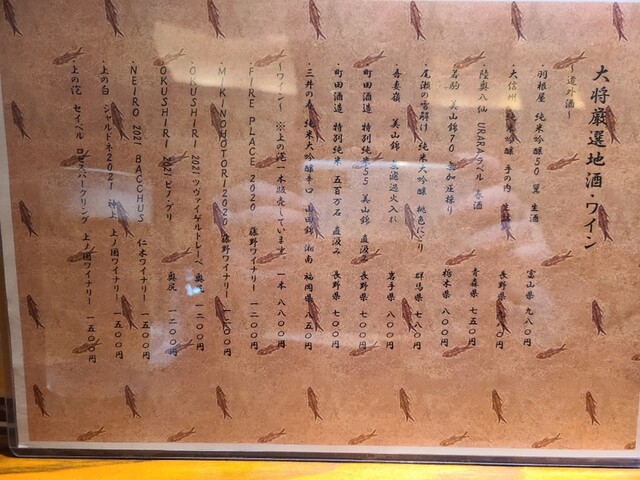 大将厳選地酒・ワイン
～道外酒～
・羽根屋 純米吟醸50 翼 生酒 富山県 九八〇円
・大信州 純米吟醸 手の内 長野県
・陸奥八仙 URARAラベル 春酒 青森県 七五〇円
若駒 美山錦70 無加圧採り 栃木県 八〇〇円
・尾瀬の雪解け 純米大吟醸 桃色にごり 群馬県 七八〇円
・吾妻嶺 美山錦 無濾過火入れ 岩手県 八〇〇円
町田酒造 特別純米55 美山錦 直汲み 長野県 七〇〇円
・町田酒造 特別純米 五百万石 直汲み 長野県 七〇〇円
・三井の寿 純米大吟醸辛口 山田錦 湘南 福岡県 八五〇円
～ワイン～ ※上の沱一本販売しています。一本 八八〇〇円
・FIRE PLACE 2020 藤野ワイナリー 一二〇〇円
・MIKINOHOTORI 2020 藤野ワイナリー 一二〇〇円
・OKUSHIRI 2021 ツヴァイゲルトレーベ 奥尻 一二〇〇円
OKUSHIRI 2021 ピノ・グリ 奥尻 一二〇〇円
・NEIRO 2021 BACCHUS 仁木ワイナリー 一五〇〇円
・上の白 シャルドネ2021 神上 上ノ国ワイナリー 一五〇〇円
・上の沱 セイベル ロゼスパークリング 上ノ国ワイナリー 一五〇〇円